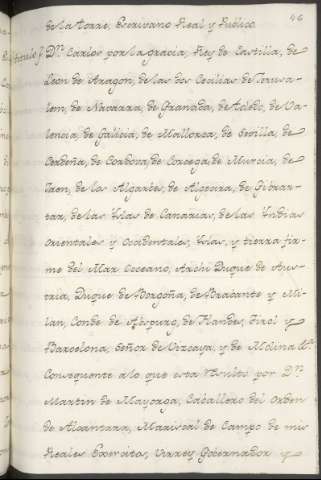 46
de la Torre, Escrivano Real y Publico.
Titulo f. Dn. Carlos por la gracia, Rey de Castilla, de
Leon de Aragon, de las dos Cecilias de Jerusa-
lem, de Navarra, de Granada, de Toledo, de Va-
lencia, de Galicia, de Mallorca, de Sevilla, de
Cerdeña, de Cordova, de Corcega, de Murcia, de
Jaen, de los Algarbes, de Algecira, de Gibrar-
tar, de las Yslas de Canarias, de las Yndias
orientales y Occidentales, Yslas, y tierra fir-
me del Mar Occeano, Archi Duque de Aus-
tria, Duque de Borgoña, de Brabante y Mi-
lan, Conde de Abspurg, de Flandes, Tirol y
Barcelona, Señor de Vizcaya, y de Molina &a.
Consequente a lo que esta resulto por Dn.
Martin de Mayorga, Caballero del Orden
de Alcantara, Mariscal de Campo de mis
Reales Exercitos, Virrey Gobernador y